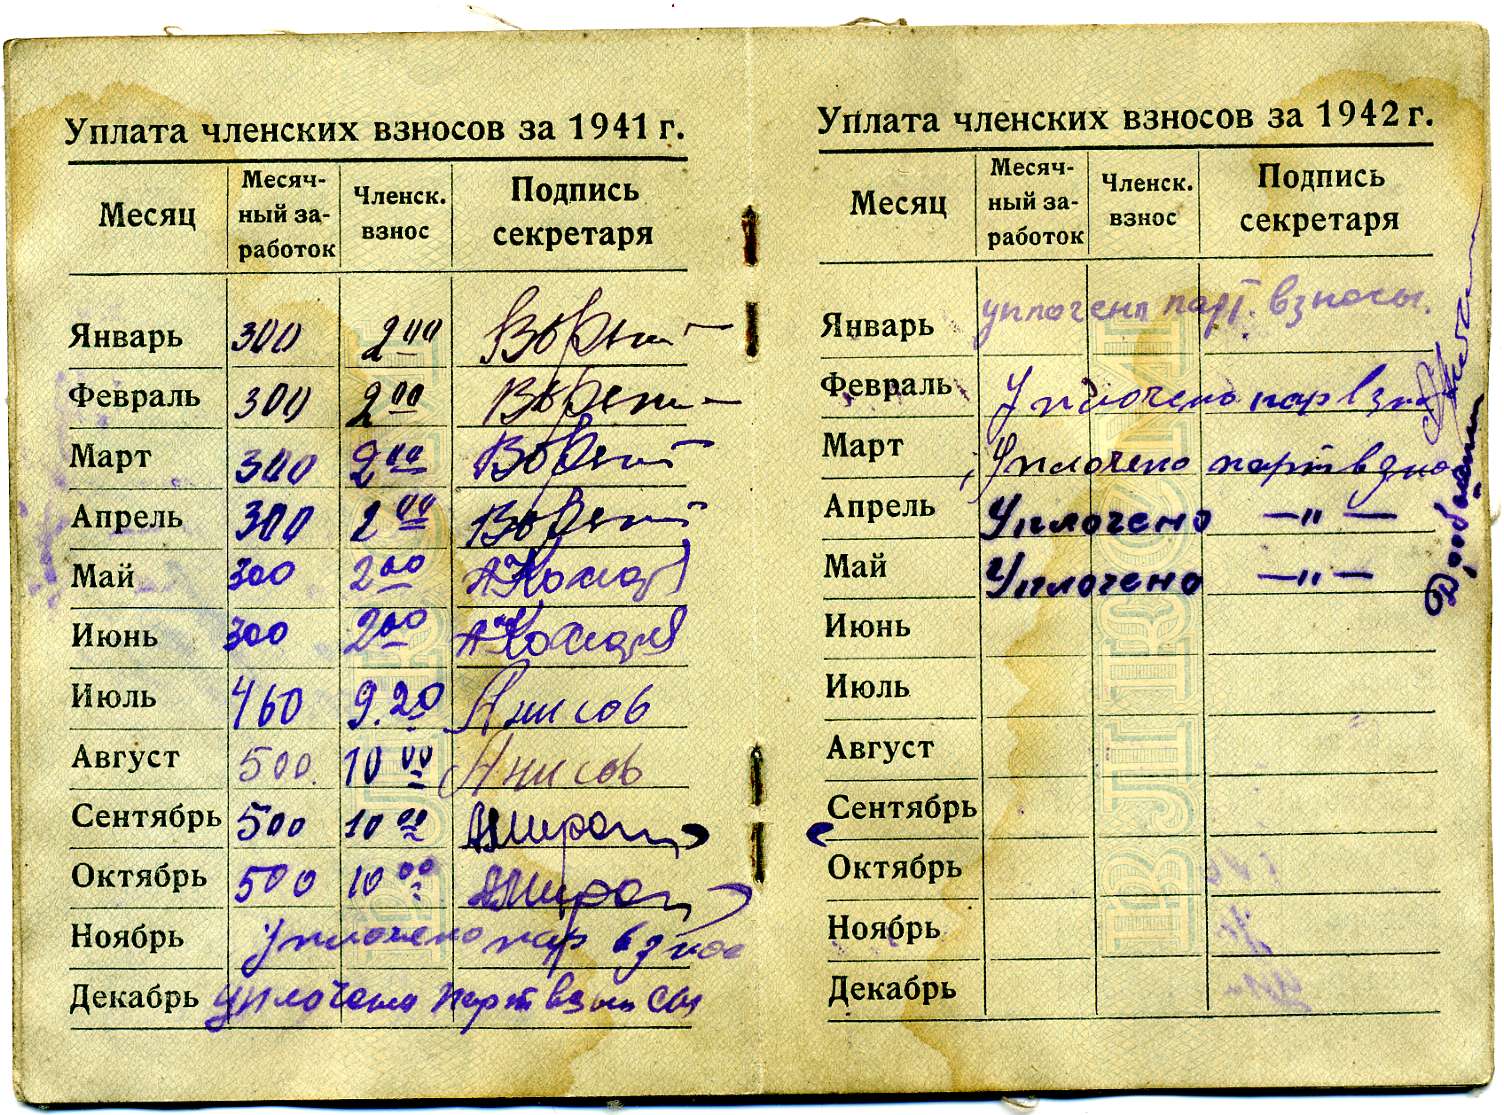 Уплата членских взносов за 1941 г.
Месяц Месяч-ный за-работок Членск. взнос Подпись секретаря
Январь 300 2 00
Февраль 300 2 00
Март 300 2 00
Апрель 300 2 00
Май 300 2 00
Июнь 300 2 00
Июль 460 9.20 Анисов
Август 500 10 00 Анисов
Сентябрь 500 10 00
Октябрь 500 10 00
Ноябрь Уплочено пар взнос
Декабрь уплочено парт взносы
Уплата членских взносов за 1942 г.
Месяц Месяч-ный за-работок Членск. взнос Подпись секретаря
Январь уплочены парт. взносы.
Февраль Уплочено пар взно
Март Уплочено парт взно
Апрель Уплочено —"—
Май Уплочено —"—
Июнь
Июль
Август
Сентябрь
Октябрь
Ноябрь
Декабрь
ВЛКСМ